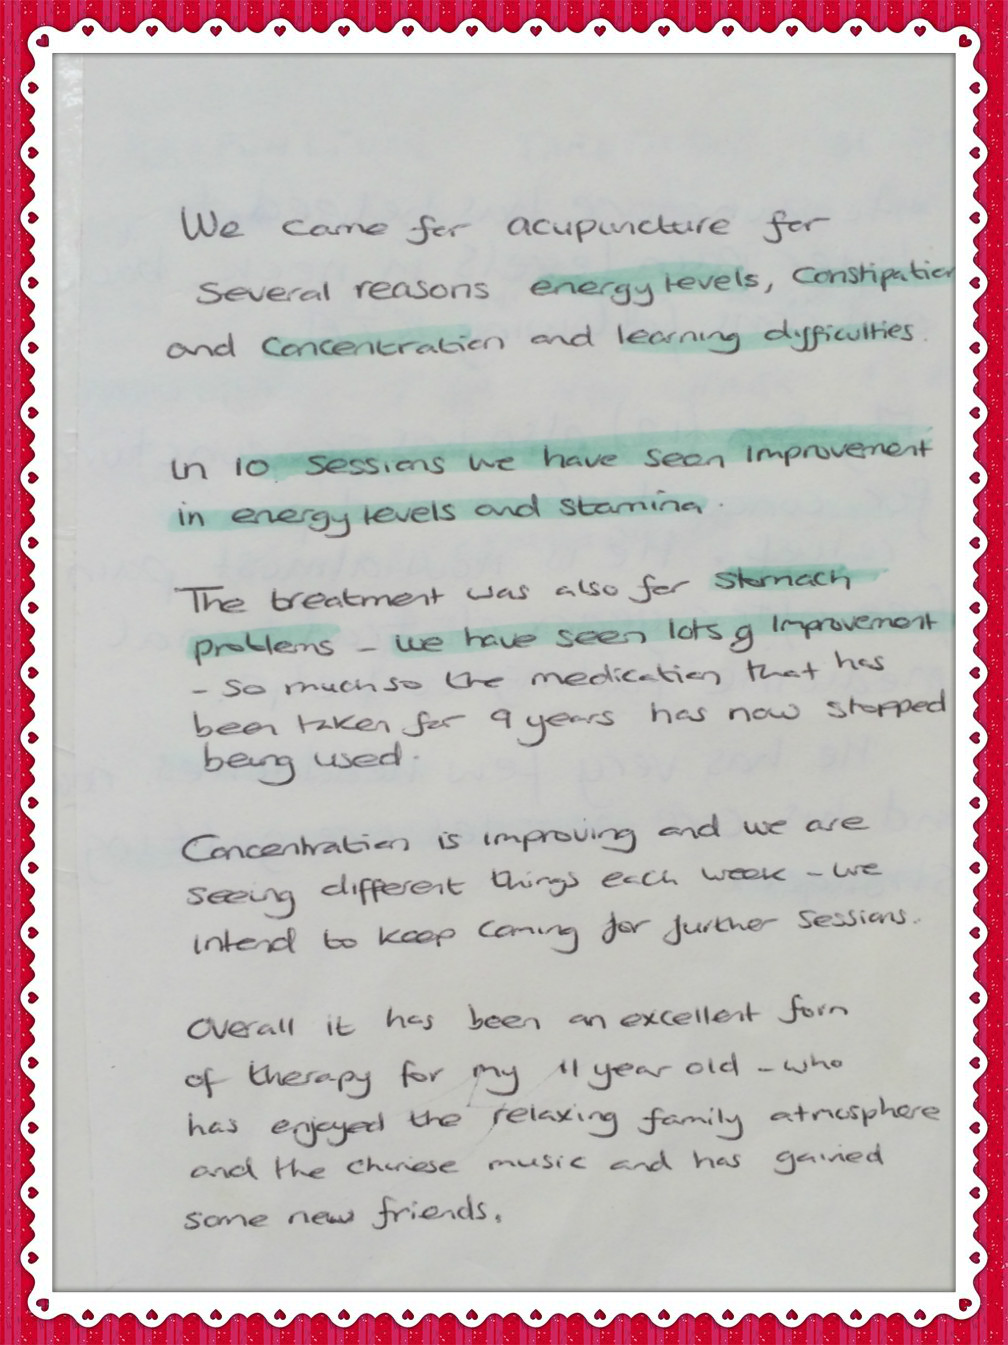 We came for acupuncture for
Several reasons energy levels, Constipation
and concentration and learning difficulties.
In 10 sessions we have seen improvement
in energy levels and stamina.
The treatment was also for stomach
problems - we have seen lots of improvement
- so much so the medication that has
been taken for 9 years has now stopped
being used.
Concentration is improving and we are
seeing different things each week - we
intend to keep coming for further sessions.
Overall it has been an excellent form
of therapy for my 11 year old - who
has enjoyed the relaxing family atmosphere
and the chinese music and has gained
some new friends.